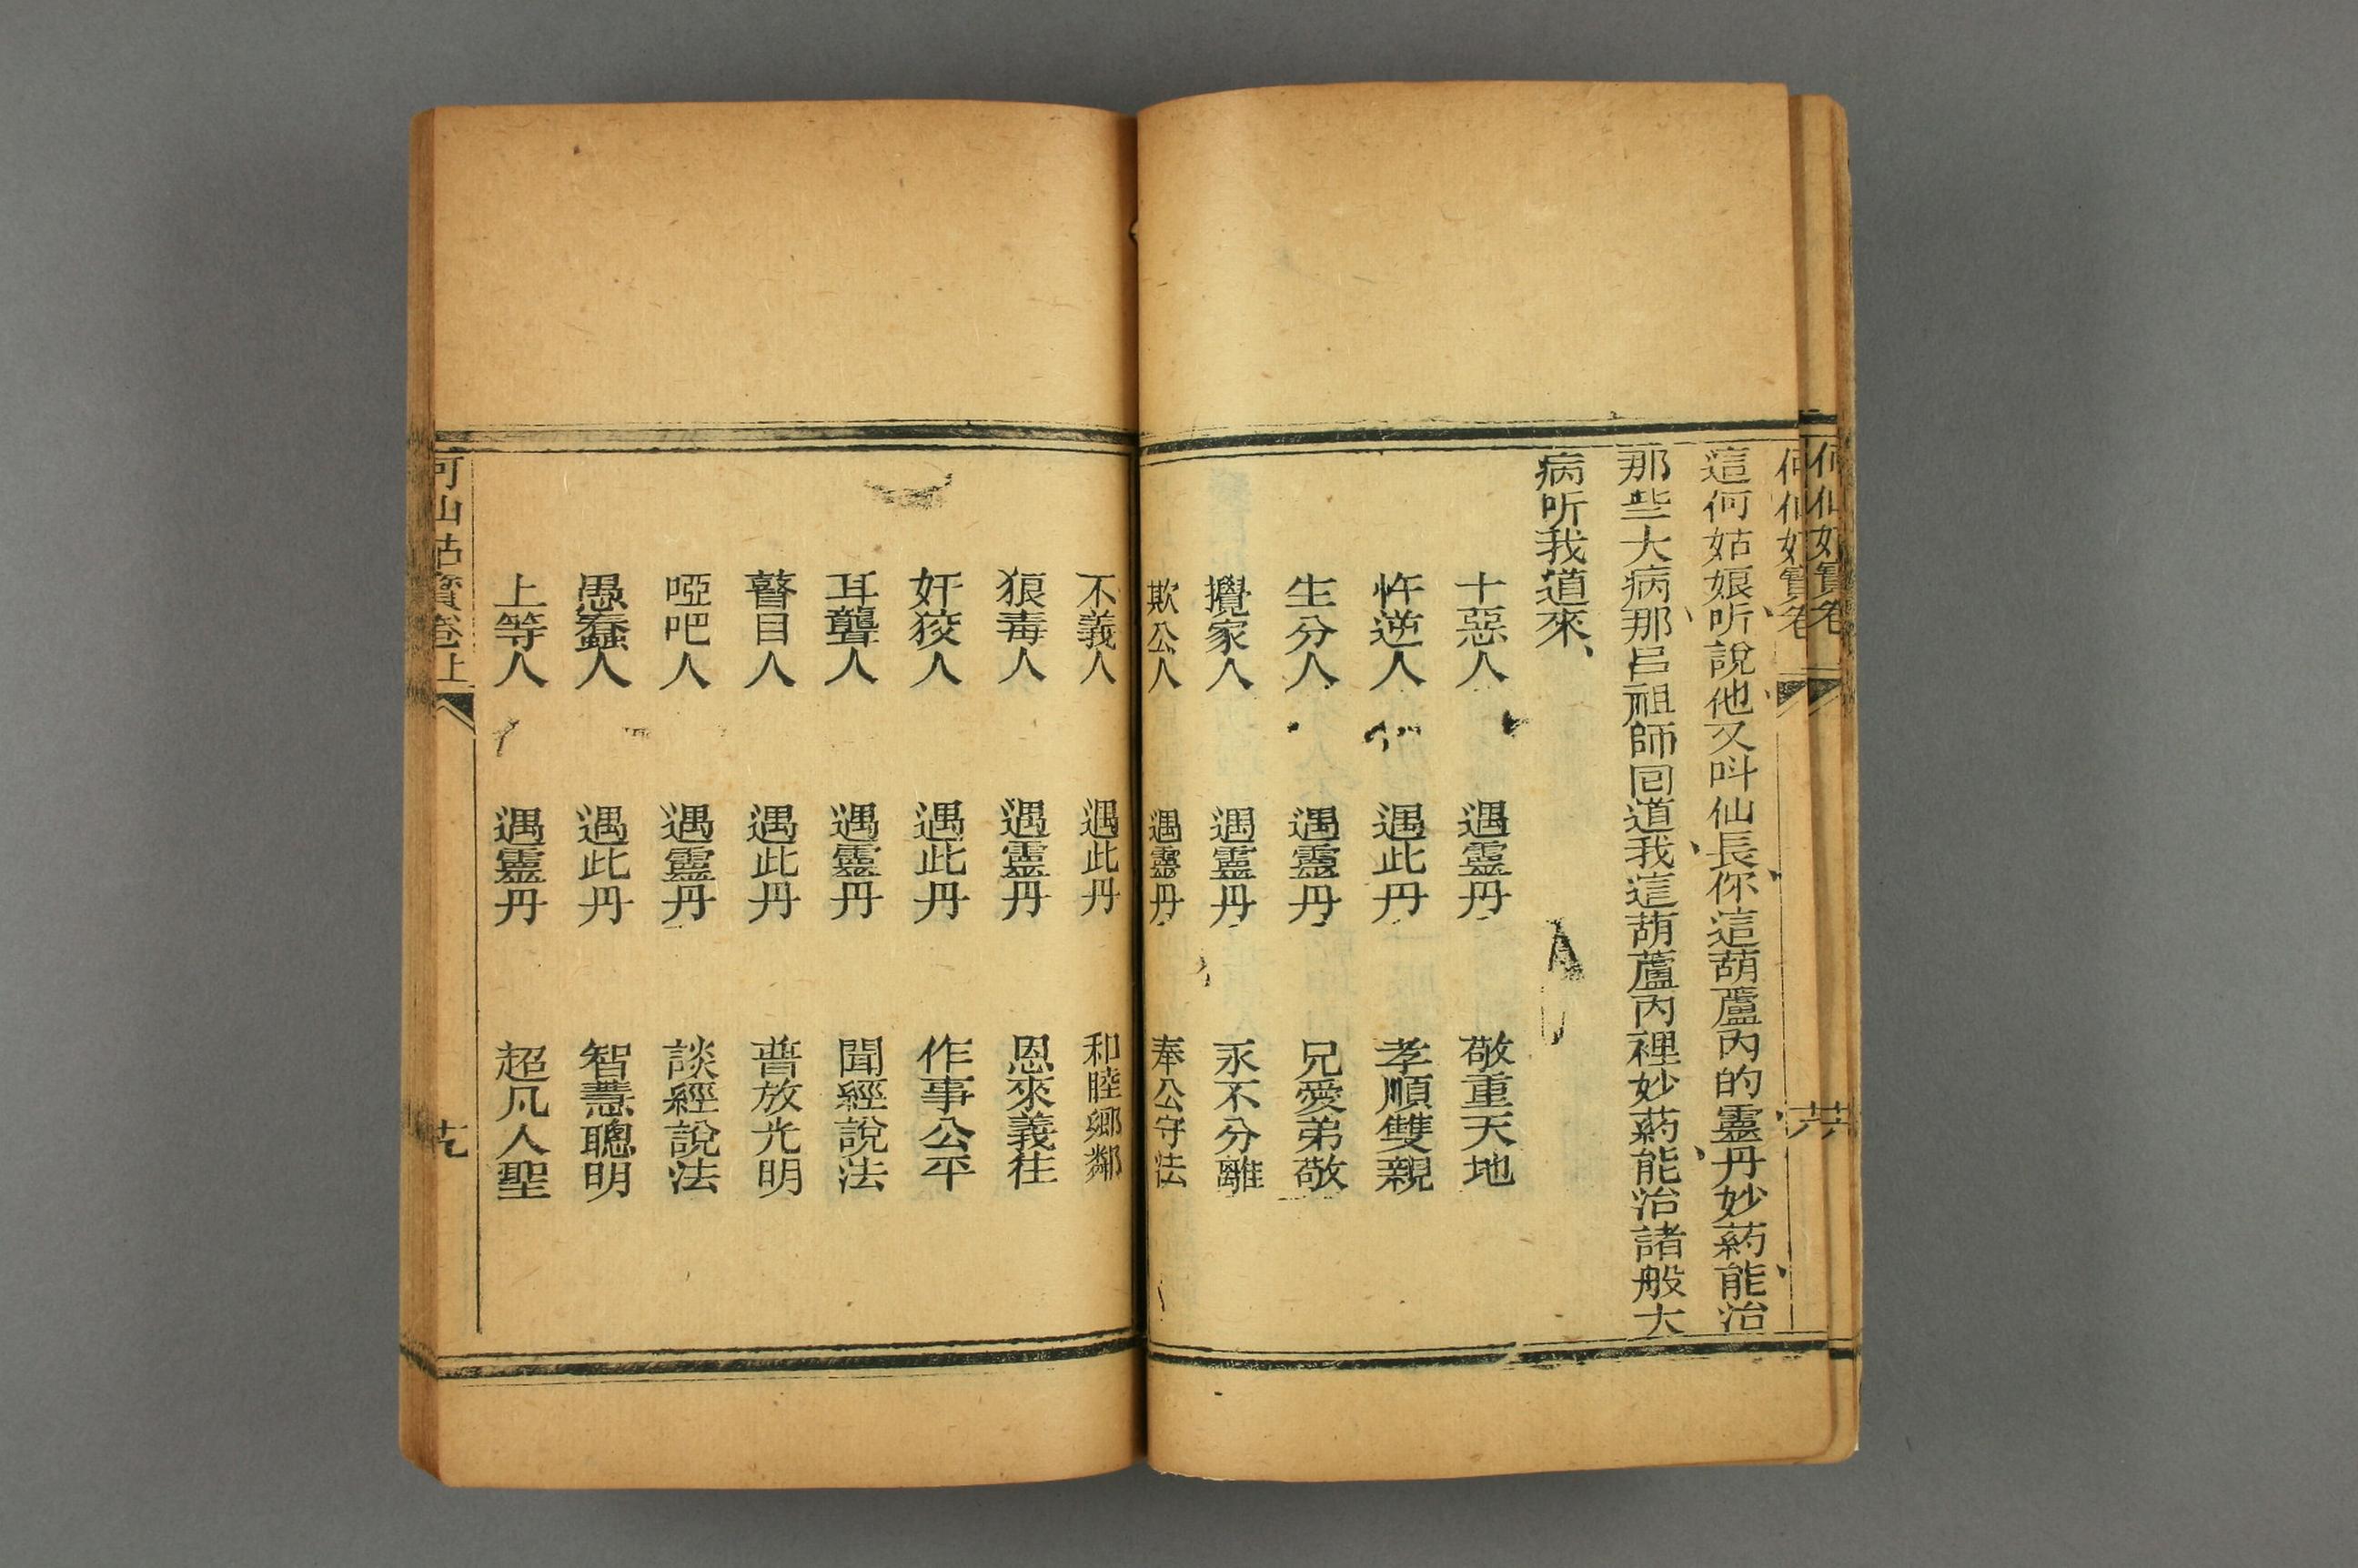 何仙姑寶卷
這何姑娘听說他又叫仙長你這葫蘆內的靈丹妙葯能治
那些大病、那呂祖師囘道、我這葫蘆內裡妙葯、能治諸般大
病听我道來、
十惡人 遇靈丹 敬重天地
忤逆人 遇此丹 孝順雙親
生分人 遇靈丹 兄愛弟敬
攪家人 遇靈丹 永不分離
欺公人 遇靈丹 奉公守法
不義人 遇此丹 和睦鄉鄰
狠毒人 遇靈丹 恩來義往
奸狡人 遇此丹 作事公平
耳聾人 遇靈丹 聞經說法
瞽目人 遇此丹 普放光明
啞吧人 遇靈丹 談經說法
愚蠢人 遇此丹 智慧聰明
上等人 遇靈丹 超凡人聖
何仙姑寶卷上